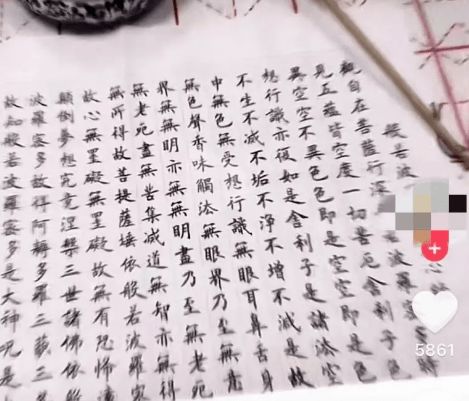 般若波
心
觀自在菩薩行深
波羅
見五蘊皆空度一切苦厄舍利子色
異空空不異色色即是空空即是色
想行識亦復如是舍利子是諸法空
不生不滅不垢不淨不增不減是故
中無色無受想行識無眼耳鼻舌身
無色聲香味觸法無眼界乃至無意
界無無明亦無無明盡乃至無老死
無老死盡無苦集滅道無智亦無得
無所得故菩提薩埵依般若波羅蜜
故心無罣礙無罣礙故無有恐怖遠
顛倒夢想究竟涅槃三世諸佛依般
波羅蜜多故得阿耨多羅三藐三
故知般若波羅蜜多是大神咒是
5861